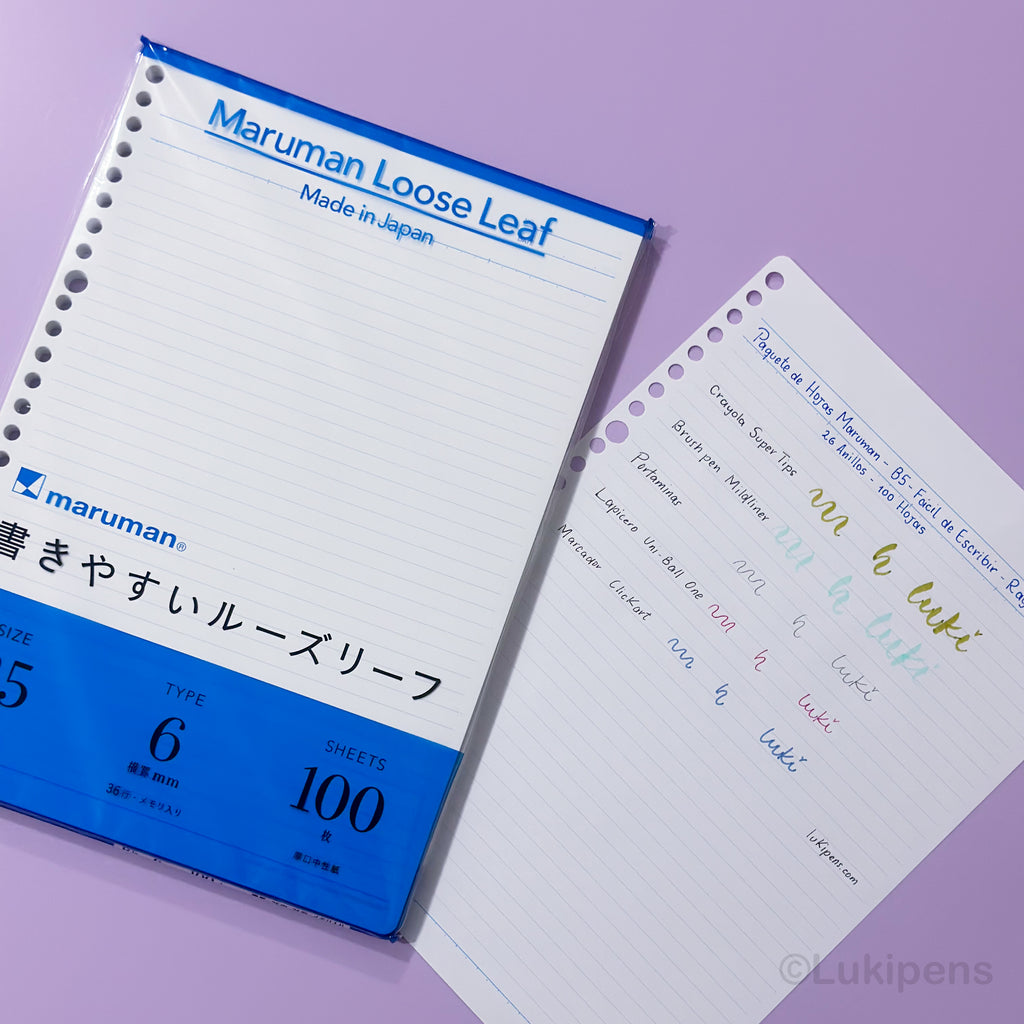 Maruman Loose Leaf
Made in Japan
maruman®
書きやすいルーズリーフ
SIZE
5
TYPE
6
横罫 mm
36行・メモリ入り
SHEETS
100
枚
厚口中性紙
Paquete de Hojas Maruman - B5 - Fácil de Escribir -
26 Anillos - 100 Hojas
Crayola Super Tips luki
Brush pen Mildliner luki
Portaminas luki
Lapicero Uni-Ball One luki
Marcador ClicKart luki
luKipens.com
©Lukipens